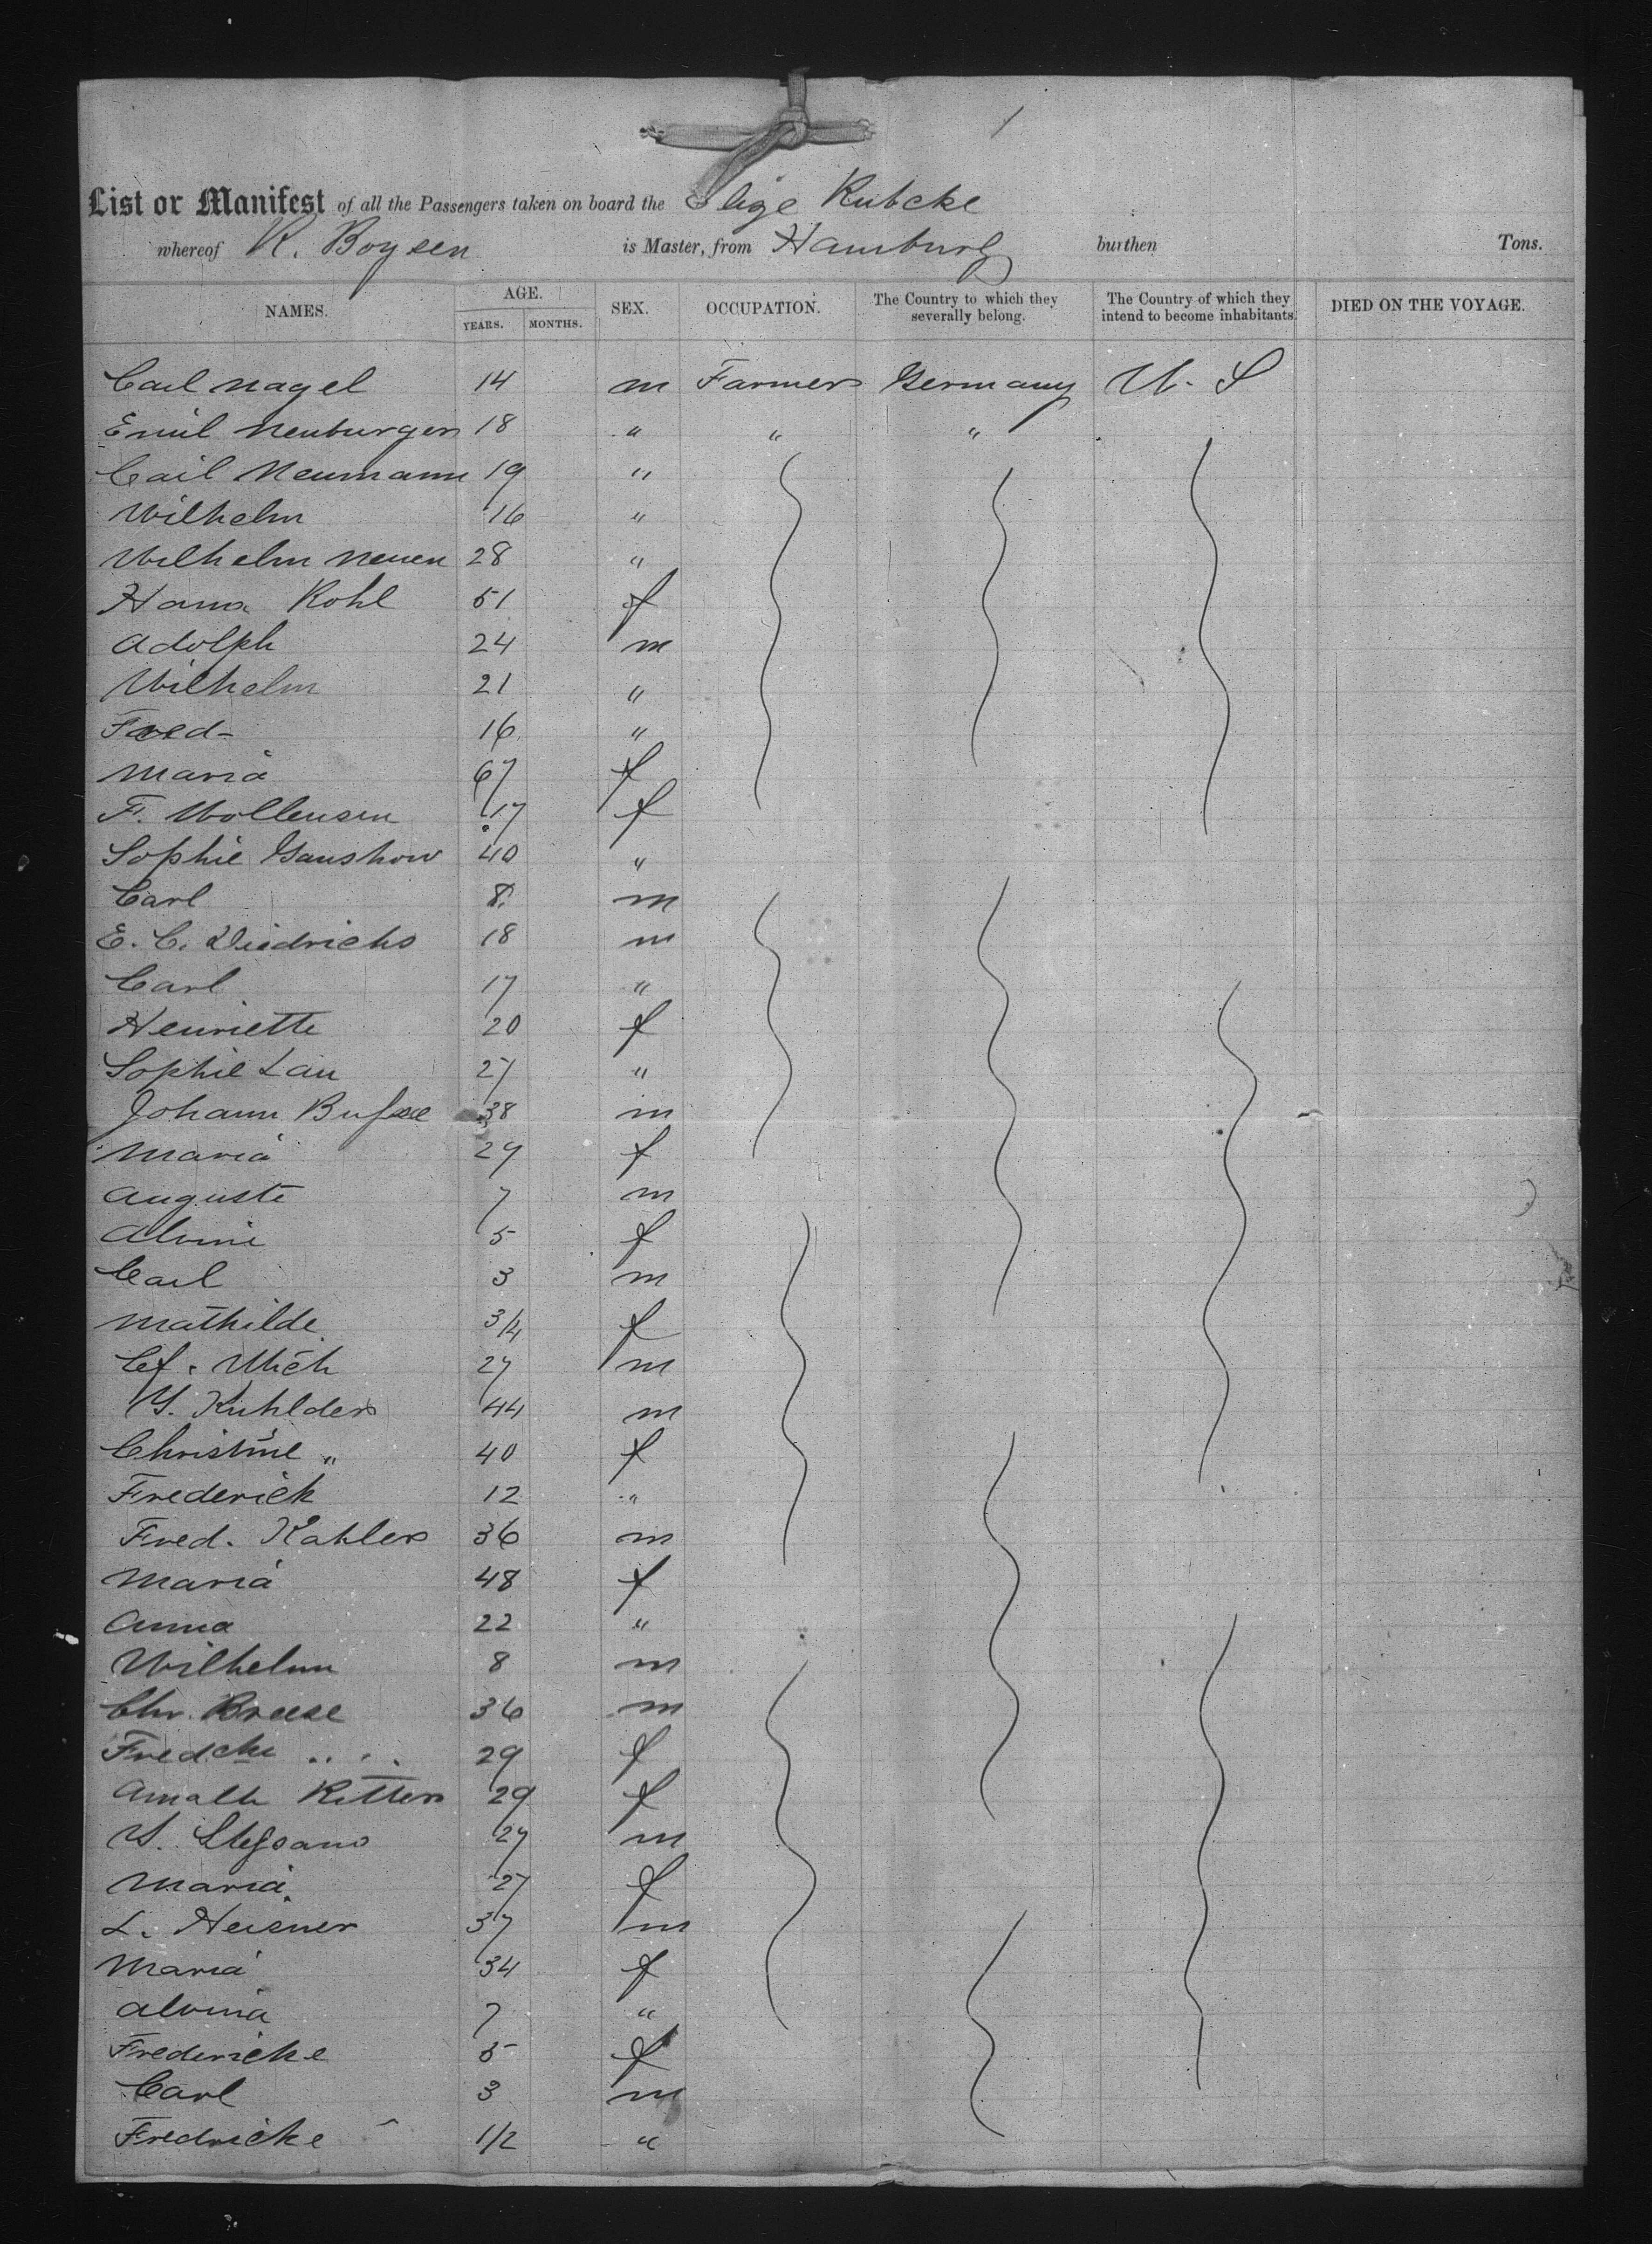 List or Manifest of all the Passengers taken on board the Elize Rubcke
whereof R. Boysen is Master, from Hamburg burthen Tons.
NAMES. AGE. YEARS. MONTHS. SEX. OCCUPATION. The Country to which they severally belong. The Country of which they intend to become inhabitants. DIED ON THE VOYAGE.
Carl Nagel 14 m Farmer Germany U. S
Emil Neuburger 18 " " "
Carl Neumann 19 "
Wilhelm 16 "
Wilhelm Neuen 28 "
Hanna Kohl 51 f
Adolph 24 m
Wilhelm 21 "
Fred- 16 "
Maria 67 f
F. Wollensen 17 f
Sophie Ganshow 40 "
Carl 8 m
E. C. Diedrichs 18 m
Carl 17 "
Henriette 20 f
Sophie Lau 27 "
Johann Busse 38 m
Maria 29 f
Auguste 7 m
Alvine 5 f
Carl 3 m
Mathilde 3/4 f
27 m
Kuhlders 44 m
Christine " 40 f
Frederick 12 "
Fred. Kahler 36 m
Maria 48 f
Anna 22 "
Wilhelm 8 m
Chr. Breese 36 m
Fredcke " " 29 f
Amalie Ritter 29 f
27 m
Maria 27 f
L. Heisner 37 m
Maria 34 f
Alvina 7 "
Fredericke 5 f
Carl 3 m
Fredricke 1/2 "